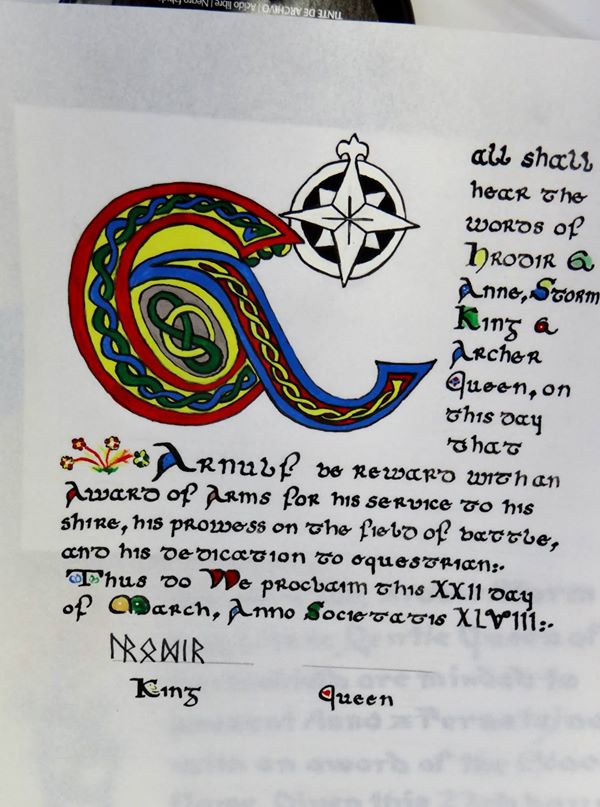 TINTE DE ARCHIVO | Acido libre | Negro
all shall
hear the
words of
Hrodir &
Anne, Storm
King &
Archer
Queen, on
this day
that
Arnulf be reward with an
Award of Arms for his service to his
shire, his prowess on the field of battle,
and his dedication to equestrian:.
Thus do We proclaim this XXII day
of March, Anno Societatis XLVIII:.
ᚺᚱᛟᛞᛁᚱ
King Queen